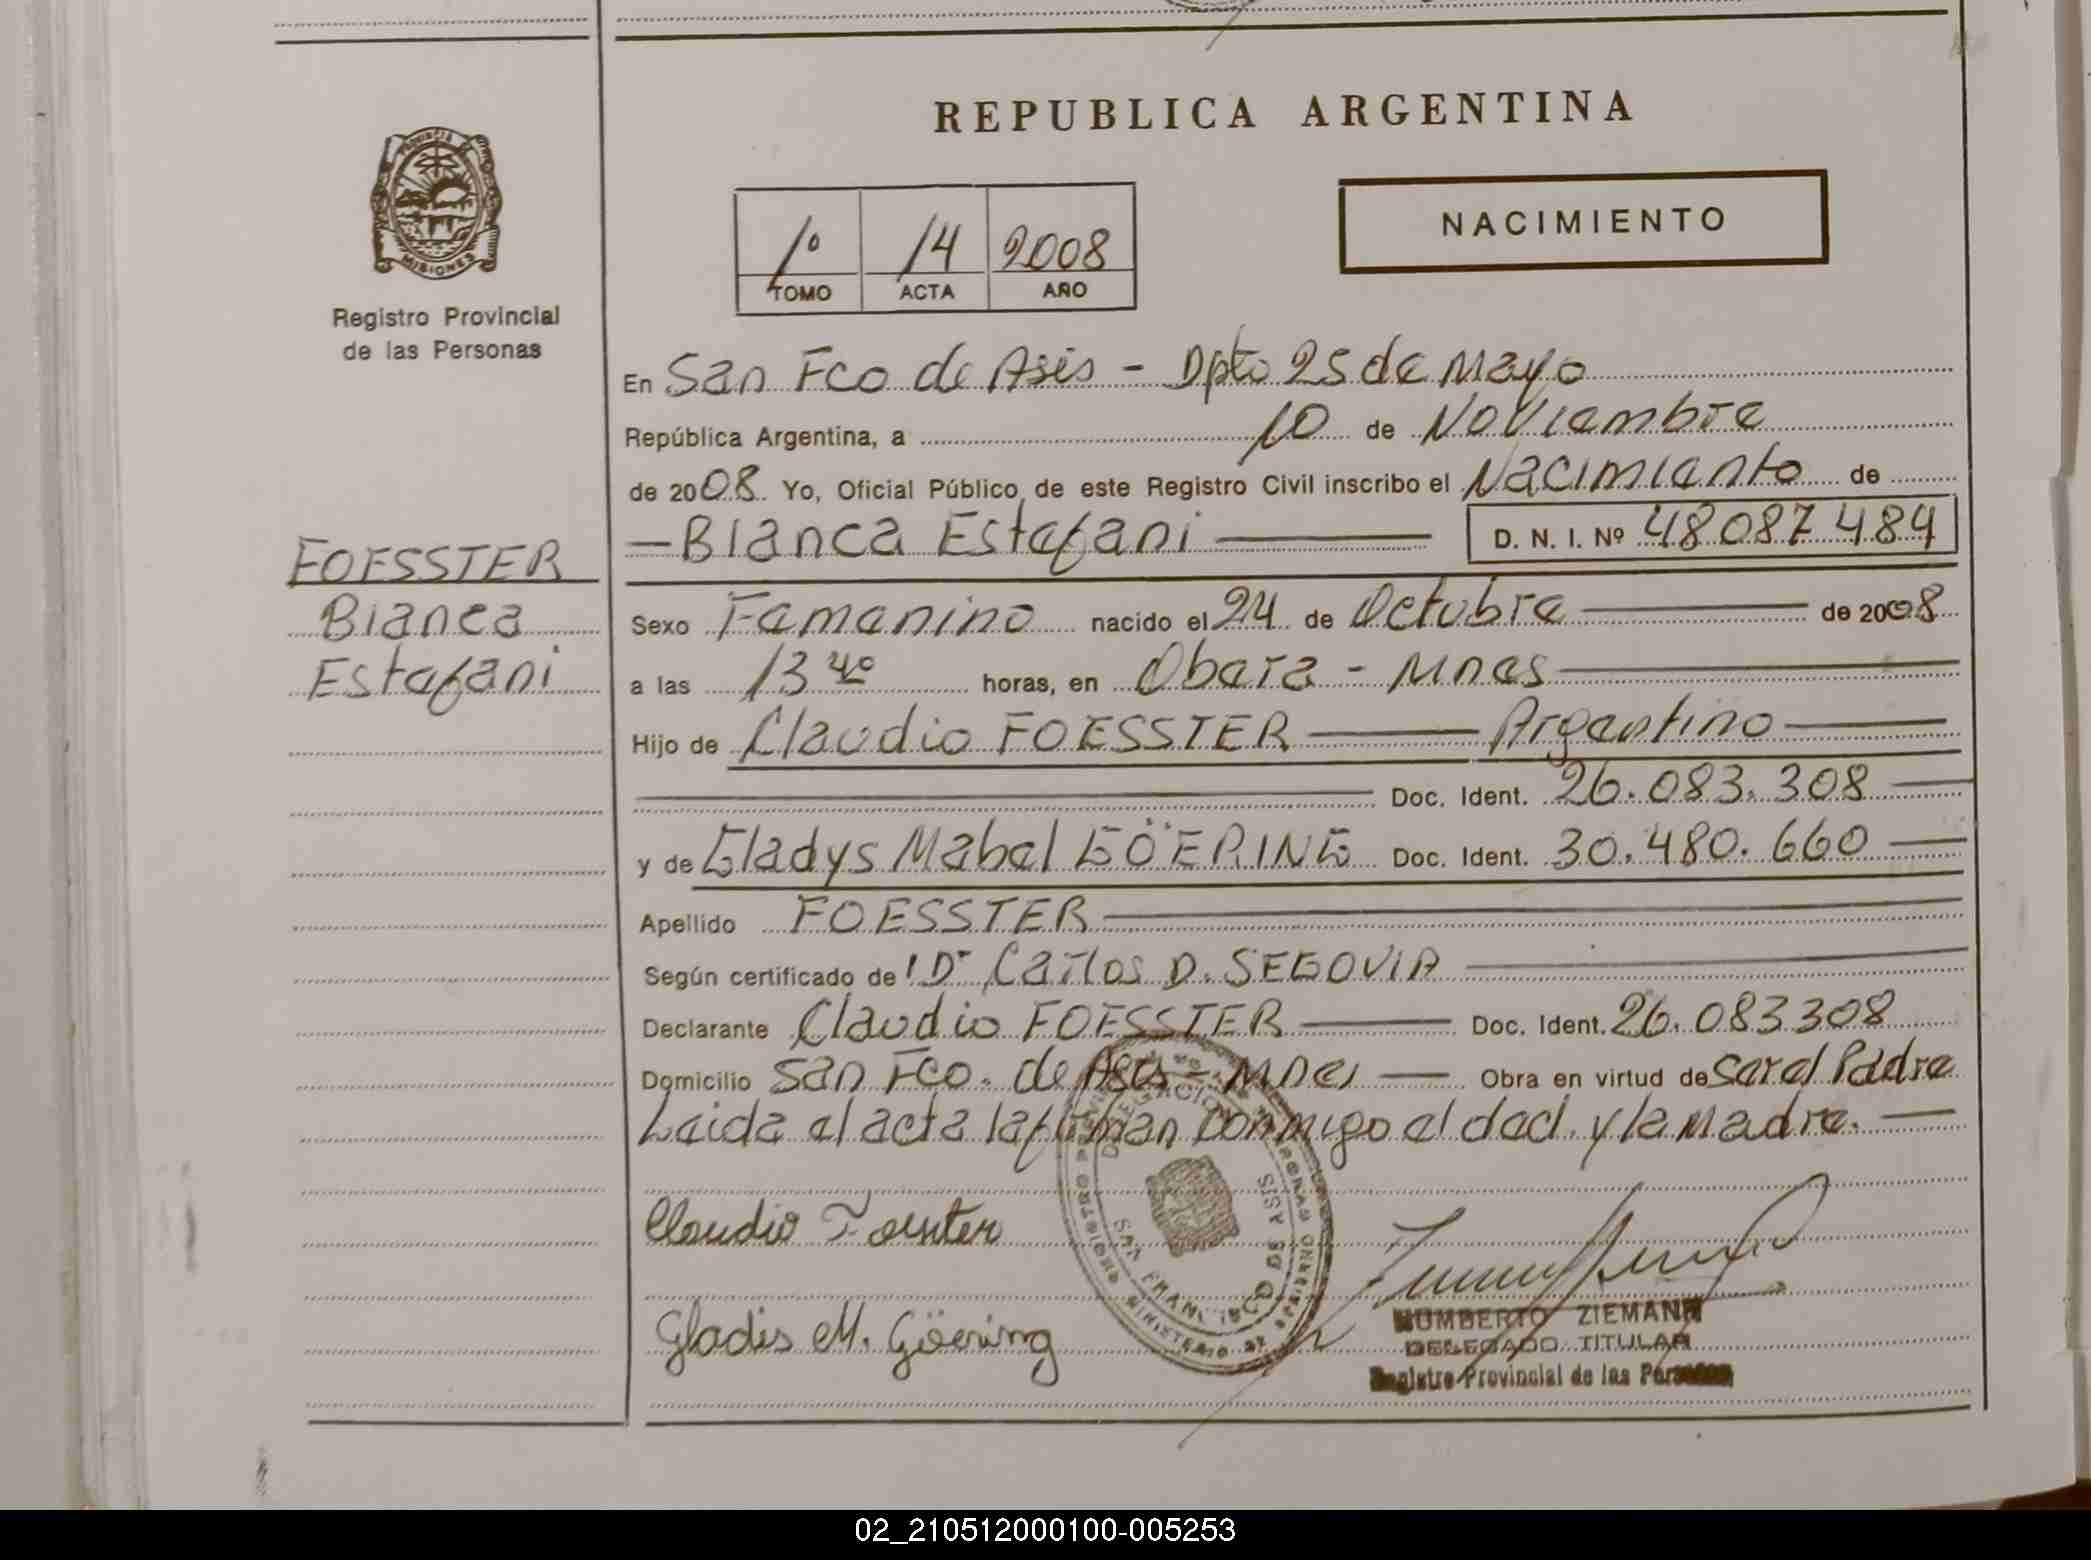 REPUBLICA ARGENTINA
PROVINCIA DE
MISIONES
Registro Provincial
de las Personas
NACIMIENTO
1º 14 2008
TOMO ACTA AÑO
En San Fco de Asis - Dpto 25 de Mayo
República Argentina, a 10 de Noviembre
de 2008 Yo, Oficial Público de este Registro Civil inscribo el Nacimiento de
Bianca Estefani D. N. I. Nº 48087484
FOESSTER
Bianca
Estefani
Sexo Femenino nacido el 24 de Octubre de 2008
a las 13 40 horas, en Obera - Mnes
Hijo de Claudio FOESSTER Argentino
Doc. Ident. 26.083.308
y de Gladys Mabel GÖERING Doc. Ident. 30.480.660
Apellido FOESSTER
Según certificado de Dr Carlos D. SEGOVIA
Declarante Claudio FOESSTER Doc. Ident. 26.083308
Domicilio San Fco. de Asis - Mnes Obra en virtud de ser el Padre
Leida el acta la firman conmigo el decl. y la Madre.
Claudio Foesster
Gladis M. Göering
SAN FRANCISCO DE ASIS
HUMBERTO ZIEMANN
DELEGADO TITULAR
Registro Provincial de las Personas
02_210512000100-005253